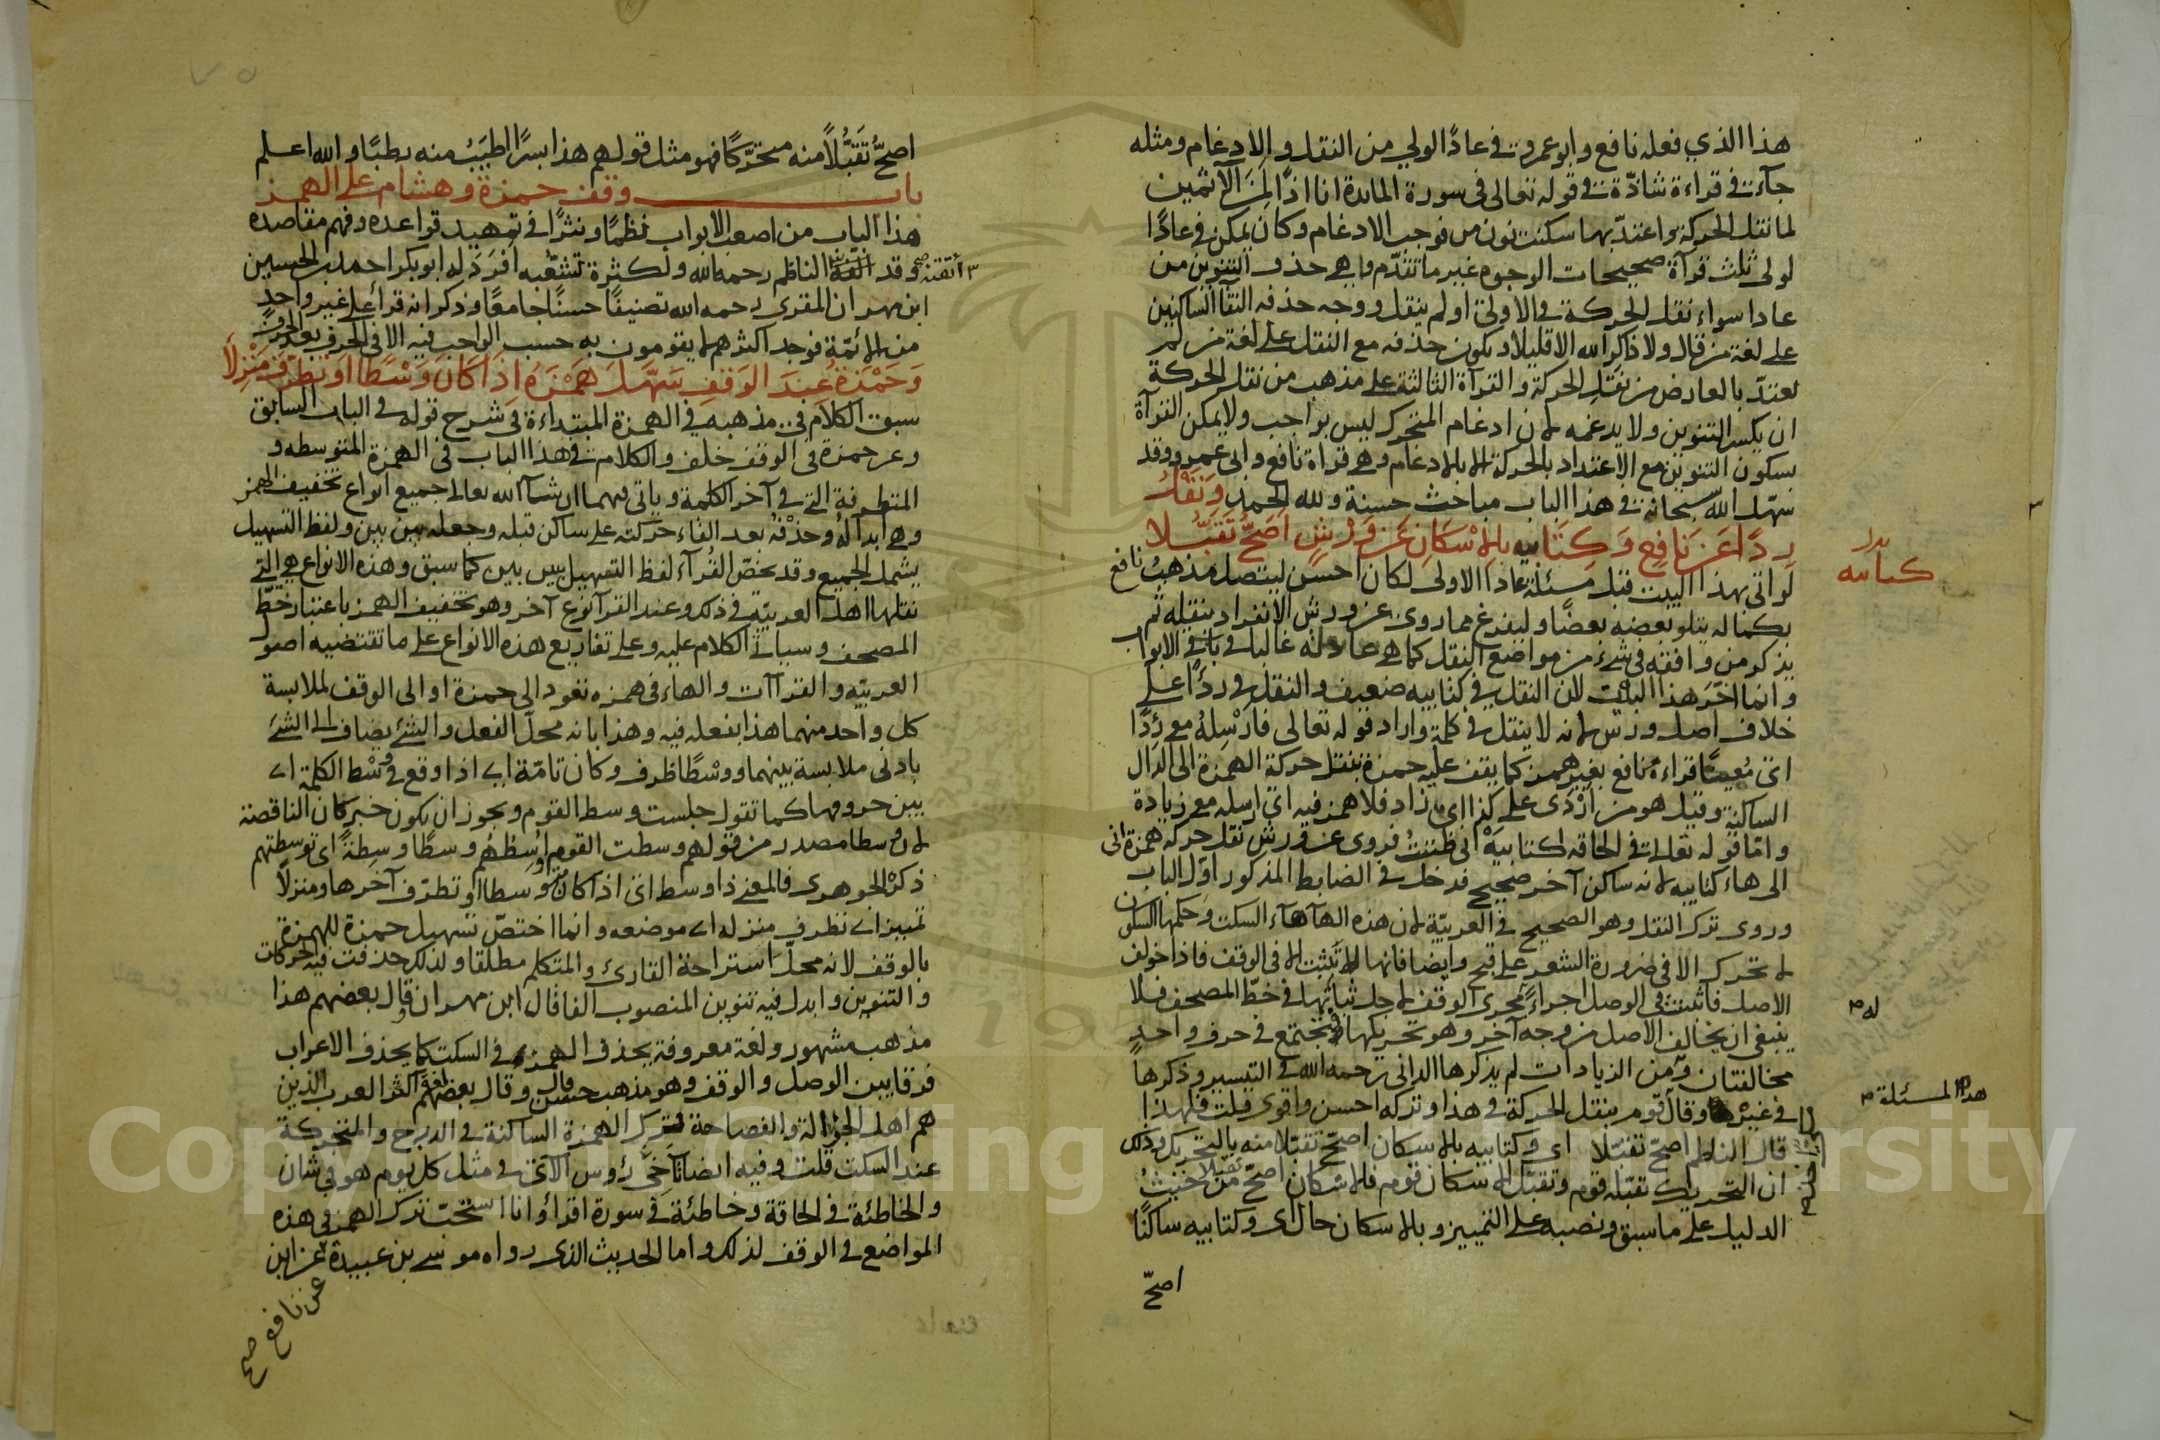 هذا الذي فعله نافع وابو عمرو في عادًا لولي من النقل والادغام ومثله
جآء في قراءة شاذّة في قوله تعالى في سورة المايدة انا اذًا لمِنَ الآثمين
لما نقل الحركة واعتدّ بها سكنت نون من فوجب الادغام وكان يمكن في عادًا
لولى ثلث قرآة صحيحات الوجوه غير ما تقدّم وما هي حذف التنوين من
عادا سواء نقل الحركة في الاولى او لم ينقل ووجه حذفه التقآ الساكنين
على لغة من قال ولا ذاكر الله الا قليلا ويكون حذفه مع النقل على لغة من لم
يعتدّ بالعارض من نقل الحركة والقرآة الثالثة على مذهب من نقل الحركة
ان يكسر التنوين ولا يدغمه لان ادغام المتحرك ليس بواجب ولا يمكن القرآة
بسكون التنوين مع الاعتداد بالحركة الا بالادغام وهي قراة نافع وابي عمرو وقد
سهّل الله سبحانه في هذا الباب مباحث حسنة ولله الحمد وَنَقْلُ
رِدًا عَن نَافِعٍ وَكِتَابِيَه بِالاِسْكَانِ عَن وَرْشٍ اَصَحُّ تَقَبُّلا
بدل
كتابيه
لو اتى بهذا البيت قبل مسئلة عادا الاولى لكان احسن ليتصل مذهبُ نافع
بكماله يتلو بعضه بعضًا وليفرغ مما روى عن ورش الانفراد بنقله ثم
يذكر من وافقه في شيء من مواضع النقل كما هي عادته غالبا في باقي الابواب
وانما اخّرَ هذا البيت لان النقل في كتابيه ضعيف والنقل في ردءًا على
خلاف اصل ورش لانه لا ينقل في كلمة واراد قوله تعالى فارسِلهُ معي رِدًا
اي مُعينًا قراءة نافع بغير همز كما يقف عليه حمزة بنقل حركة الهمزة الى الدال
الساكنة وقيل هو من اَرْدَى على كذا اي زاد فلا همز فيه اي ارسله معي زيادة
وامّا قوله تعالى في الحاقه كتابيَهْ اني ظننتُ فروى عن ورش نقل حركة همزة اني
الى هاء كتابيه لانه ساكن آخر صحيح فدخل في الضابط المذكور اوّل الباب
وروى ترك النقل وهو الصحيح في العربيّة لان هذه الهآ هآء السكت وحكمها السكون
لا تحرك الا في ضرورة الشعر على قبح وايضا فانها لا تثبت الا في الوقف فاذا خولف
الاصل فاثبتت في الوصل اجراءً مجرى الوقف لاجل ثباتها في خطّ المصحف فلا
له
ينبغي ان يخالف الاصل من وجه آخر وهو تحريكها فتجتمع في حرف واحد
مخالفتان ومن الزيادات لم يذكرها الداني رحمه الله في التيسير وذكرها
هذه المسئلة
في غيره وقال قوم بنقل الحركة في هذا وتركه احسن واقوى قلت فلهذا
قال الناظم اصحّ تقبّلا اى وكتابيه بالاسكان اصحّ تقبّلا منه بالتحريك وذلك
ان التحريك تقبّله قوم وتقبّل الاسكان قوم فالاسكان اصحّ تقبّلا من حيثُ
الدليل على ما سبق ونصبه على التمييز وبالاسكان حال اى وكتابيه ساكنًا
اصحّ
اصحّ تَقَبُّلاً منه متحرّكًا فهو مثل قولهم هذا بسرًا اطيَبُ منه رطبًا والله اعلم
باب وقف حمزة وهشام على الهمز
هذا الباب من اصعب الابواب نظمًا ونثرًا في تمهيد قواعده وفهم مقاصده
وقد اتقنه الناظم رحمه الله ولكثرة تشعّبه اَفرَدَ له ابو بكر احمد بن الحسين
ابن مهران المقرى رحمه الله تصنيفًا حسنًا جامعًا وذكر انه قرأ على غير واحد
من الائمّة فوجد اكثرهم لا يقومون به حسب الواجب فيه الا في الحرف بعد الحرف
وَحَمْزَةُ عِندَ الوَقفِ سَهَّلَ هَمْزَهُ اِذَا كَانَ وَسْطًا اَوْ تَطَرَّفَ مَنْزِلَا
سبق الكلام في مذهبه في الهمزة المبتداءة في شرح قوله في الباب السابق
وعن حمزة في الوقف خلف والكلام في هذا الباب في الهمزة المتوسطه و
المتطرفة التي في آخر الكلمة وياتي فيهما ان شآء الله تعالى جميع انواع تخفيف الهمز
وهي ابدالُهُ وحذْفُه بعد القاء حركته على ساكن قبله وجعله بين بين ولفظ التسهيل
يشمل الجميع وقد يخصّ القُرآء لفظ التسهيل ببين بين كما سبق وهذه الانواع هي التي
نقلها اهل العربيّة في ذلك وعند القرآ نوع آخر وهو تخفيف الهمز باعتبار خطّ
المصحف وسياتي الكلام عليه وعلى تفاريع هذه الانواع على ما تقتضيه اصول
العربيّه والقراآت والهاء في همزه تعود الى حمزة او الى الوقف لملابسة
كل واحد منهما هذا بفعله فيه وهذا بانه محلّ الفعل والشئ يضاف الى الشئ
بادنى ملابسة بينهما ووسْطًا ظرف وكان تامّة اي اذا وقع في وسْط الكلمة اي
بين حروفها كما تقول جلست وسط القوم ويجوز ان يكون خبر كان الناقصة
لان وسطا مصدر من قولهم وسطت القوم اَوسِطهُم وسطًا وسِطةً اى توسطتهم
ذكرْ الجوهرى فالمعنى ذا وسط اى اذا كان وسطا او تطرّف آخرها ومنزلًا
تمييز اى تطرف منزله اى موضعه وانما اختصّ تسهيل حمزة للهمزة
بالوقف لانه محلّ استراحة القارئ والمتكلم مطلقا ولذلك حذفت فيه الحركات
والتنوين وابدل فيه تنوين المنصوب الفا قال ابن مهران وقال بعضهم هذا
مذهب مشهور ولغة معروفة يحذف الهمز في السكت كما يحذف الاعراب
فرقا بين الوصل والوقف وهو مذهب حسن وقال بعضهم لغة اكثر العرب الذين
هم اهل الجزالة والفصاحة ترك الهمزة الساكنة في الدرج والمتحركة
عند السكت قلت وفيه ايضا تآخي رؤس الآي في مثل كل يوم هو في شان
والخاطئة في الحاقة وخاطئة في سورة اقرأ وانا استحبّ ترك الهمز في هذه
المواضع في الوقف لذلك واما الحديث الذى رواه موسى بن عبيدة عن ابن
عن نافع صح
Copyright © King University